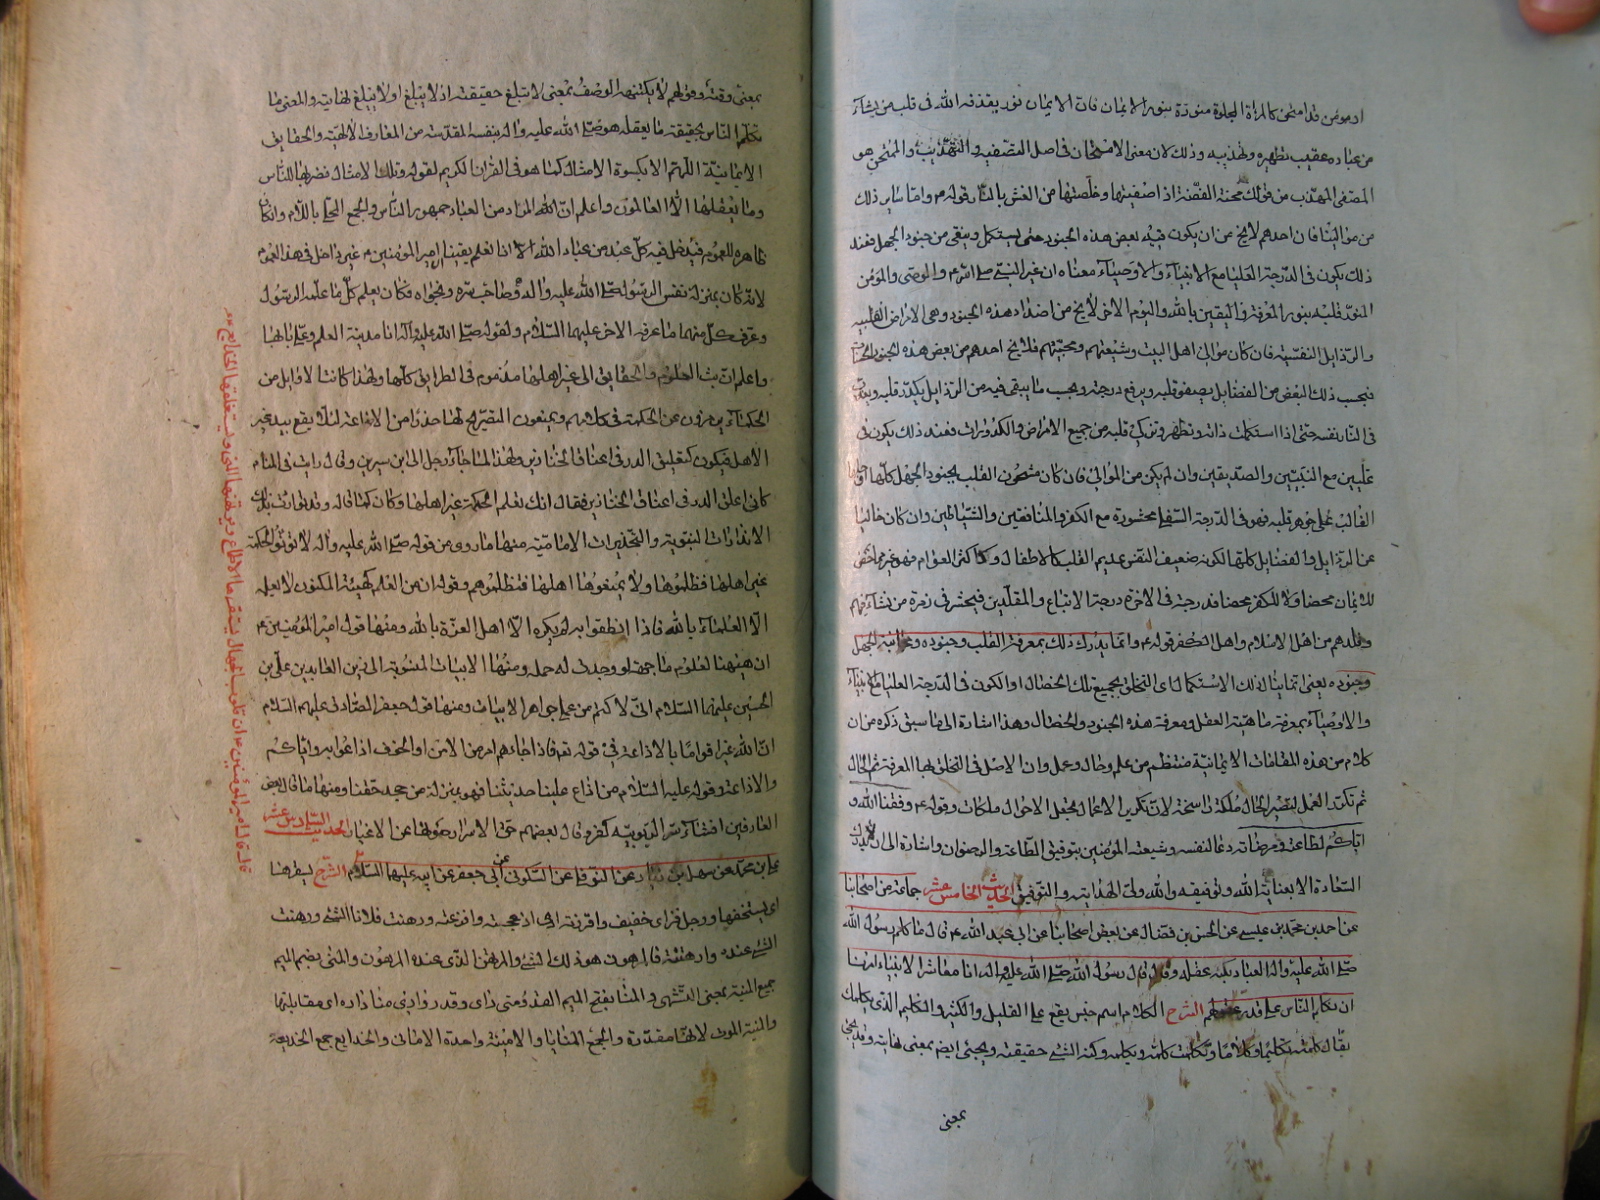 او مؤمن قد امتحن كالمرآة المجلوة منورة بنور الايمان فان الايمان نور يقذفه الله فى قلب من يشاء
من عباده عقيب تطهيره وتهذيبه وذلك لان معنى الامتحان فى اصل التصفيه والتهذيب والممتحن هو
المصفى المهذب من قولك محنت الفضة اذا صفيتها وخلصتها من الغش بالنار قوله م واما ساير ذلك
من موالينا فان احدهم لا يخ من ان يكون فيه بعض هذه الجنود حتى يستكمل وينقى من جنود الجهل فعند
ذلك يكون فى الدرجة العليا مع الانبياء والاوصياء معناه ان غير النبى صلى الله م والوصى والمؤمن
المنور قلبه بنور المعرفة واليقين بالله واليوم الاخر لا يخ من اضداد هذه الجنود وهى الامراض القلبيه
والرذايل النفسية فان كان موالى اهل البيت وشيعتهم ومحبتهم فلا يخ احدهم من بعض هذه الجنود
فبحسب ذلك البعض من الفضايل يصفو قلبه ويرفع درجته وبحسب ما يبقى فيه من الرذايل يكدر قلبه ويعذب
فى النار نفسه حتى اذا استكملت ذاته وتطهر وتزكى قلبه من جميع الامراض والكدورات فعند ذلك يكون فى
عليين مع النبيين والصديقين وان لم يكن من الموالى فان كان مشحون القلب بجنود الجهل كلها او
الغالب على جوهر قلبه فهو فى الدرجة السفلى محشورة مع الكفرة والمنافقين والشياطين وان كان خاليا
عن الرذايل والفضايل كلها لكونه ضعيف النفس عديم القلب كالاطفال وكاكثر العوام فهو غير ممتحن
للايمان محضا ولا للكفر محضا فدرجته فى الاخرة درجة الاتباع والمقلدين فيحشر فى زمرة من نشأ فيهم
وقلدهم من اهل الاسلام واهل الكفر قوله م وانما يدرك ذلك بمعرفة القلب وجنوده ومجانبة الجهل
وجنوده يعنى انما ينال ذلك الاستكمال اى التخلق بجميع تلك الخصال او الكون فى الدرجة العليا مع الانبياء
والاوصياء بمعرفة ماهية العقل ومعرفة هذه الجنود والخصال وهذا اشارة الى ما سبق ذكره من ان
كلا م من هذه المقامات الايمانية منتظم من علم وحال وعمل وان الاصل فى التخلق بها المعرفة ثم الحال
ثم تكرر العمل ليصير الحال ملكة راسخة لان تكرير الاعمال يجعل الاحوال ملكات وقوله م وفقنا الله و
اياكم لطاعته ومرضاته دعا لنفسه وشيعته المؤمنين بتوفيق الطاعة والرضوان واشارة الى ان
السعادة الا بعناية الله وتوفيقه والله ولى الهداية والتوفيق الحديث الخامس عشر جماعة من اصحابنا
عن احمد بن محمد بن عيسى عن الحسن بن فضال عن بعض اصحابنا عن ابى عبد الله م قال ما كلم رسول الله
صلى الله عليه واله العباد بكنه عقله وقال قال رسول الله صلى الله عليه واله انا معاشر الانبياء امرنا
ان نكلم الناس على قدر عقولهم الشرح الكلام اسم جنس يقع على القليل والكثير والكليم الذى يكلمك
يقال كلمته تكليما وكلاما وتكلمت كلمة وبكلمة وكنه الشئ حقيقته ويجئ ايضم بمعنى نهايته وقد يجئ
بمعنى
بمعنى وقته وقولهم لا يكتنهه الوصف بمعنى لا يبلغ حقيقته اذ لا يبلغ او لا يبلغ نهايته والمعنى ما
تكلم الناس بحقيقة ما يعقله هو صلى الله عليه واله بنفسه المقدسة من المعارف الالهية والحقايق
الايمانية اللهم الا بكسوة الامثال كما هو فى القران الكريم لقوله وتلك الامثال نضربها للناس
وما يعقلها الا العالمون واعلم ان الله المراد من العباد جمهور الناس والجمع المحلى باللام وان كان
ظاهره للعموم فيدخل فيه كل عبد من عباد الله الا انا نعلم يقينا ان امير المؤمنين م غير داخل فى هذا العموم
لانه كان بمنزلة نفس الرسول صلى الله عليه واله وصاحب سره ونجواه فكان يعلم كل ما علمه الرسول
وعرف كل منهما ما عرفه الاخر عليهما السلام ولقوله صلى الله عليه وآله انا مدينة العلم وعلى بابها
واعلم ان بث العلوم والحقايق الى غير اهلها مذموم فى الطرايق كلها ولهذا كانت الاوايل من
الحكماء يرمزون عن الحكمة فى كلامهم ويمنعون التصريح لها حذرا من الاذاعة لئلا يقع بيد غير
الاهل فيكون كتعليق الدر فى اعناق الخنازير ولهذا لما جاء رجل الى ابن سيرين وقال رايت فى المنام
كانى اعلق الدر فى اعناق الخنازير فقال انك تعلم الحكمة غير اهلها وكان كما قاله وقد تواترت بذلك
الانذارات النبوية والتحذيرات الامامية منها ما روى من قوله صلى الله عليه واله لا تؤتوا الحكمة
غير اهلها فتظلموها ولا تمنعوها اهلها فتظلموهم وقوله ان من العلم كهيئة المكنون لا يعلمه
الا العلماء بالله فاذا نطقوا به لم ينكره الا اهل الغرة بالله ومنها قول امير المؤمنين م
ان هيهنا لعلوم ما جمة لو وجدت له حملة ومنها الابيات المنسوبة الى زين العابدين على بن
الحسين عليهما السلام انى لاكتم من علمى جواهره الابيات ومنها قول جعفر الصادق عليهم السلام
ان الله عير اقواما بالاذاعة فى قوله تعم فاذا جاءهم امر من الامن او الخوف اذاعوا به واياكم
والاذاعة وقوله عليه السلام من اذاع علينا حديثنا فهو بمنزلة من جحد حقنا ومنها ما قال بعض
العارفين افشاء سر الربوبية كفر وقال بعضهم حق الاسرار صونها عن الاغيار الحديث السادس عشر
على بن محمد عن سهل بن زياد عن النوفلى عن السكونى عن ابى جعفر عن ابيه عليهما السلام
قال قال امير المؤمنين م ان قلوب الجهال تستفزها الاطماع وترتهنها المنى وتستعلقها الخدايع
الشرح ليفزها
اى يستخفها ورجل فز اى خفيف وافززته اى ازعجته وافزعته ورهنت فلانا الشئ ورهنت
الشئ عنده وارهنته فالمرهون هو ذلك الشئ والمرتهن الذى عنده المرهون والمنى بضم الميم
جميع المنية بمعنى التشهى والمنا بفتح الميم القدر
والمنية الموت لانها مقدرة والجمع المنايا والامنية واحدة الامانى والخدايع جمع الخديعة